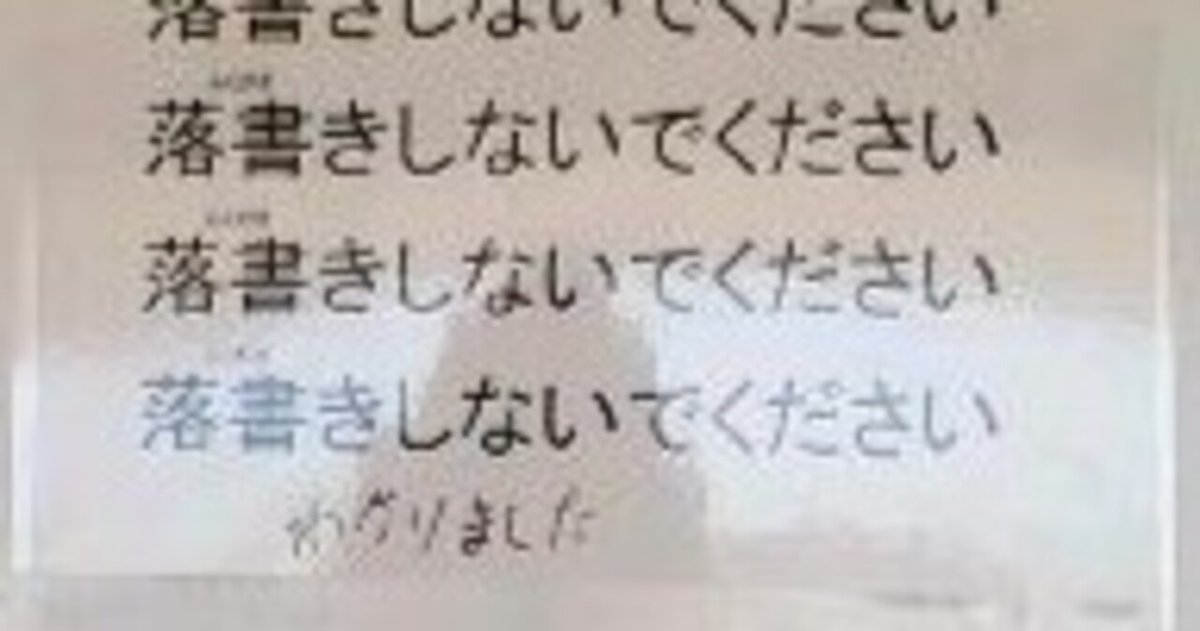 落書きしないでください
落書きしないでください
落書きしないでください
落書きしないでください
わかりました